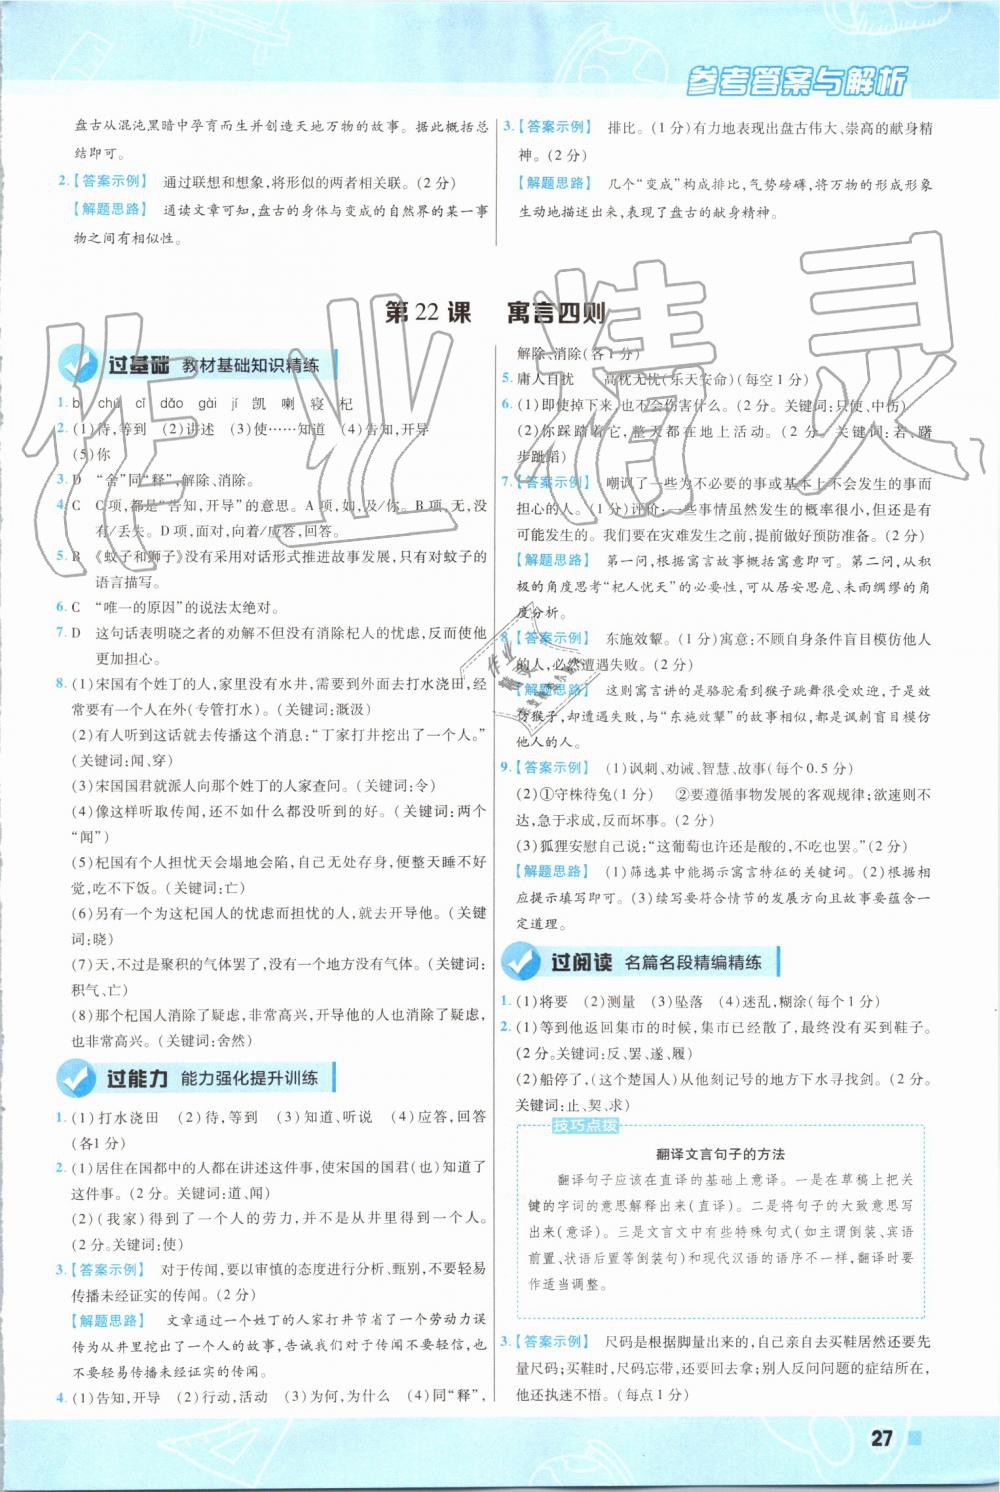 参考答案与解析
盘古从混沌黑暗中孕育而生并创造天地万物的故事。据此概括总
结即可。
2.【答案示例】 通过联想和想象,将形似的两者相关联。(2分)
【解题思路】 通读文章可知,盘古的身体与变成的自然界的某一事
物之间有相似性。
3.【答案示例】 排比。(1分)有力地表现出盘古伟大、崇高的献身精
神。(2分)
【解题思路】 几个“变成”构成排比,气势磅礴,将万物的形成形象
生动地描述出来,表现了盘古的献身精神。
第22课 寓言四则
过基础 教材基础知识精练
1. bì chú cǐ dǎo gài jí 凯 喇 寝 杞
2. (1)待,等到 (2)讲述 (3)使……知道 (4)告知,开导
(5)你
3. D “舍”同“释”,解除、消除。
4. C C项,都是“告知,开导”的意思。A项,如,及/你。B项,无,没
有/丢失。D项,面对,向着/应答,回答。
5. B 《蚊子和狮子》没有采用对话形式推进故事发展,只有对蚊子的
语言描写。
6. C “唯一的原因”的说法太绝对。
7. D 这句话表明晓之者的劝解不但没有消除杞人的忧虑,反而让他
更加担心。
8. (1)宋国有个姓丁的人,家里没有水井,需要到外面去打水浇田,经
常要有一个人在外(专管打水)。(关键词:溉汲)
(2)有人听到这话就去传播这个消息:“丁家打井挖出了一个人。”
(关键词:闻、穿)
(3)宋国国君就派人向那个姓丁的人家查问。(关键词:令)
(4)像这样听取传闻,还不如什么都没听到的好。(关键词:两个
“闻”)
(5)杞国有个人担忧天会塌地会陷,自己无处存身,便整天睡不好
觉,吃不下饭。(关键词:亡)
(6)另外有一个为这杞国人的忧虑而担忧的人,就去开导他。(关键
词:晓)
(7)天,不过是聚积的气体罢了,没有一个地方没有气体。(关键词:
积气、亡)
(8)那个杞国人消除了疑虑,非常高兴,开导他的人消除了疑虑,
也非常高兴。(关键词:舍然)
过能力 能力强化提升训练
1. (1)打水浇田 (2)待,等到 (3)知道、听说 (4)应答,回答
(各1分)
2. (1)居住在国都中的人都在讲述这件事,使宋国的国君(也)知道了
这件事。(2分。关键词:道、闻)
(2)(我家)得到了一个人的劳力,并不是从井里得到了一个人。
(2分。关键词:使)
3.【答案示例】 对于传闻,要以审慎的态度进行分析、甄别,不要轻易
传播未经证实的传闻。(2分)
【解题思路】 文章通过一个姓丁的人家打井节省了一个劳动力误
传为从井里挖出了一个人的故事,告诫我们对于传闻不要轻信,
不要轻易传播未经证实的传闻。
4. (1)告知,开导 (2)行动,活动 (3)为何,为什么 (4)同“释”,
解除、消除(各1分)
5. 庸人自扰 高枕无忧(乐天安命)(每空1分)
6. (1)即使掉下来,也不会伤害什么。(2分。关键词:只使、中伤)
(2)你踩踏着它,整天都在地上活动。(2分。关键词:若、躇
步跐蹈)
7.【答案示例】 嘲讽了一些为不必要的事或基本上不会发生的事而
担心的人。(1分)评价:一些事情虽然发生的概率很小,但还是有
可能发生的。我们要在灾难发生之前,提前做好预防准备。(2分)
【解题思路】 第一问,根据寓言故事概括寓意即可。第二问,从积
极的角度思考“杞人忧天”的必要性,可从居安思危、未雨绸缪的角
度分析。
8.【答案示例】 东施效颦。(1分)寓意:不顾自身条件盲目模仿他人
的人,必然遭遇失败。(2分)
【解题思路】 这则寓言讲的是骆驼看到猴子跳舞很受欢迎,于是模
仿猴子,却遭遇失败,与“东施效颦”的故事相似,都是讽刺盲目模仿
他人的人。
9.【答案示例】 (1)讽刺、劝诫、智慧、故事(每个0.5分)
(2)①守株待兔(1分) ②要遵循事物发展的客观规律;欲速则不
达,急于求成,反而坏事。(2分)
(3)狐狸安慰自己说:“这葡萄也许还是酸的,不吃也罢。”(2分)
【解题思路】 (1)筛选其中能揭示寓言特征的关键词。(2)根据相
应提示填写即可。(3)续写要符合情节的发展方向且故事要蕴含一
定道理。
过阅读 名篇名段精编精练
1. (1)将要 (2)测量 (3)坠落 (4)迷乱,糊涂(每个1分)
2. (1)等到他返回集市的时候,集市已经散了,最终没有买到鞋子。
(2分。关键词:反、罢、遂、履)
(2)船停了,(这个楚国人)从他刻记号的地方下水寻找剑。(2分。
关键词:止、契、求)
技巧点拨
翻译文言句子的方法
翻译句子应该在直译的基础上意译。一是在草稿上把关
键的字词的意思解释出来(直译)。二是将句子的大致意思写
出来(意译)。三是文言文中有些特殊句式(如主谓倒装、宾语
前置、状语后置等倒装句)和现代汉语的语序不一样,翻译时要
作适当调整。
3.【答案示例】 尺码是根据脚量出来的,自己亲自去买鞋居然还要先
量尺码;买鞋时,尺码忘带,还要回去拿;别人反问问题的症结所在,
他还执迷不悟。(每点1分)
27
作业精灵